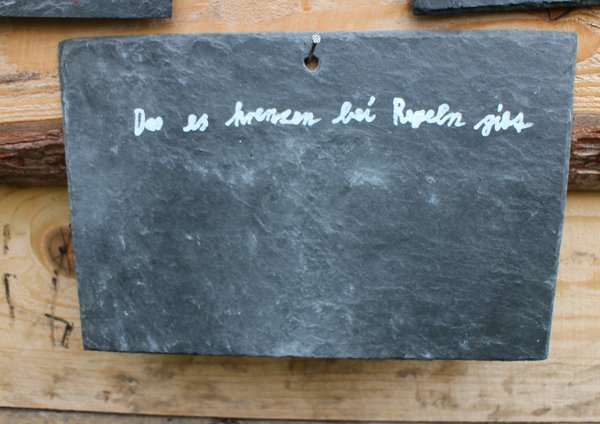 Das es krenzen bei Regeln gibt